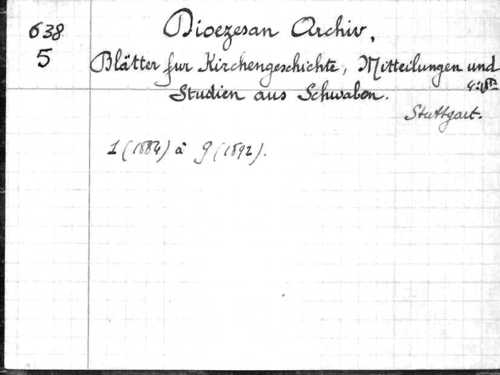 638
5
Dioezesan Archiv,
Blätter fur Kirchengeschichte, Mitteilungen und
Studien aus Schwaben.
Stuttgart.
1 (1884) à 9 (1892).